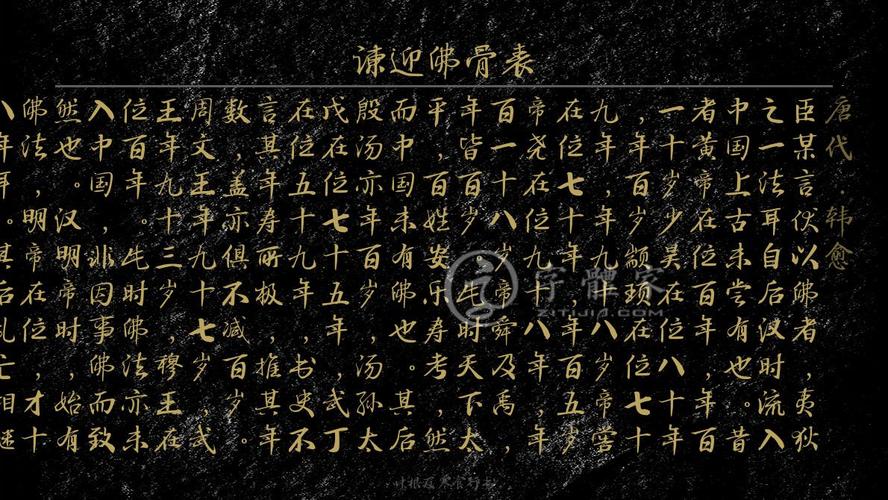 谏迎佛骨表
唐代·韩愈
臣某言伏以佛者，夷狄
之一法耳自后汉时流入
中国上古未尝有也。昔
者黄帝在位百年，年百
一十岁少昊在位八十年
，年百岁颛顼在位七十
九年，年九十八岁帝喾
在位七十年，年百五岁
帝尧在位九十八年，年
百一十八岁帝舜及禹，
年皆百岁。此时天下太
平，百姓安乐寿考，然
而中国未有佛也。其后
殷汤亦年百岁，汤孙太
戊在位七十五年，武丁
在位五十九年，书史不
言其年寿所极，推其年
数，盖亦俱不减百岁。
周文王年九十七岁，武
王年九十三岁，穆王在
位百年。此时佛法亦未
入中国，非因事佛而致
然也。汉明帝时，始有
佛法，明帝在位，才十
八年耳。其后乱亡相继
字體家
ZITIJIA.COM